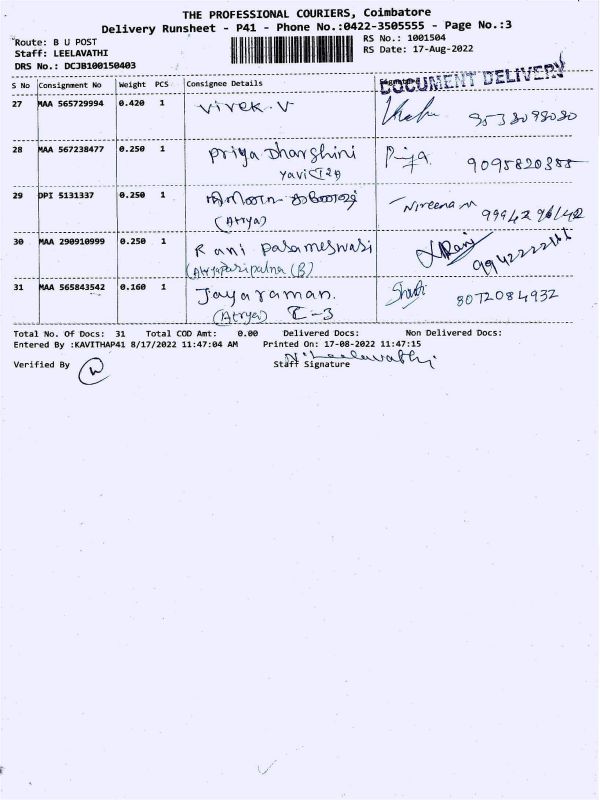 THE PROFESSIONAL COURIERS, Coimbatore
Delivery Runsheet - P41 - Phone No.:0422-3505555 - Page No.:3
Route: B U POST
RS No.: 1001504
Staff: LEELAVATHI
RS Date: 17-Aug-2022
DRS No.: DCJB100150403
S No Consignment No Weight PCS Consignee Details Signature
DOCUMENT DELIVERY
27 MAA 565729994 0.420 1 Vivek. V 9538098080
28 MAA 567238477 0.250 1 Priya Dharshini Priya. 9095820355
29 DPI 5131337 0.250 1 Nireena M
(Atrya)
30 MAA 290910999 0.250 1 Rani Parameswari Rani
(B)
31 MAA 565843542 0.160 1 Jayaraman. 8072084932
(Atrya) -3
Total No. Of Docs: 31 Total COD Amt: 0.00 Delivered Docs: Non Delivered Docs:
Entered By :KAVITHAP41 8/17/2022 11:47:04 AM Printed On: 17-08-2022 11:47:15
N. Leelavathi
Verified By Staff Signature